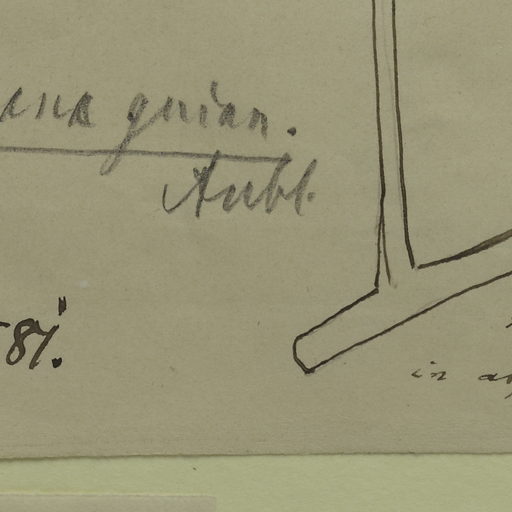 ana guian.
Aubl.
87."
in